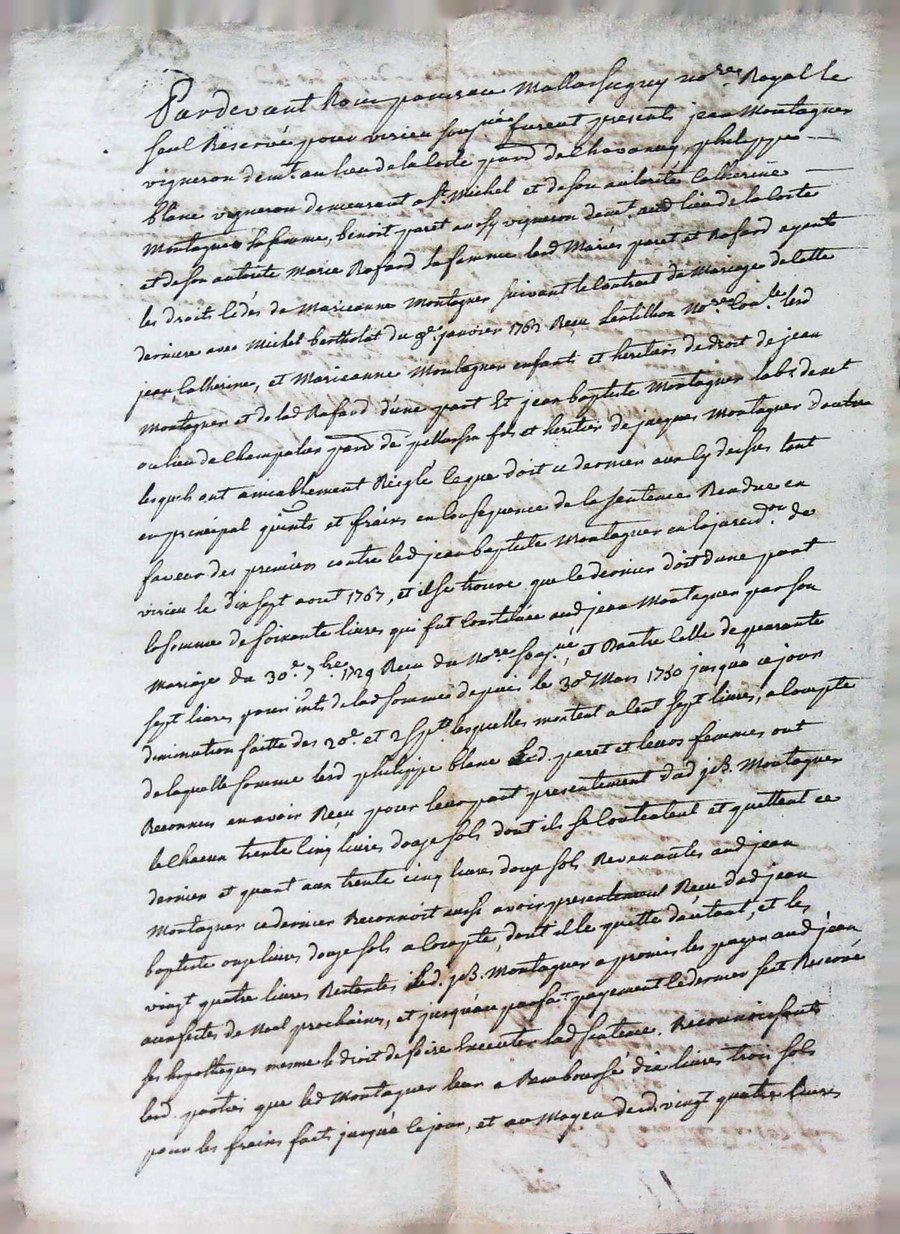 Pardevant nous Mallassagny no.re Royal le
seul Reservé pour virieu soussigné furent presents jean Montagner
vigneron dem.t au lieu de la Coste par.sse de Chavanay, philippe
blanc vigneron demeurant a S.t Michel et de son autorité Catherine
Montagner sa femme, benoit paret aussy vigneron dem.t aud lieu de la Coste
et de son autorité Marie Rafard sa femme lesd Mariés paret et Rafard ayants
les droits Cédés de Marieanne Montagner suivant le Contrat de Mariage de cette
derniere avec Michel bertholat du 9.e janvier 1767 Recu Lentillon No.re lesd
jean, Catherine, et Marieanne Montagner enfants et heritiers de droit de jean
Montagner et de lad Rafard d'une part Et jean baptiste Montagner lab.r dem.t
au lieu de Champalier par.sse de pellussin fils et heritier de jacques Montagner d'autre
lesquels ont amicablement Réglé ce que doit ce dernier aux cy dessus tant
en principal qu'ints et fraix en Consequence de la sentence Rendue en
faveur des premiers contre led jean baptiste Montagner en la jurid.on de
virieu le dix sept aout 1767, et il se trouve que le dernier doit d'une part
la somme de soixante livres qui fut Constituée aud jean Montagner par son
Mariage du 30.e 7.bre 1729 Recu du No.re soussigné, et D'autre Celle de quarante
sept livres pour ints de lad somme depuis le 30.e Mars 1750 jusqu'a ce jour
diminution faitte des 20.e et 2 s. p.r lesquelles montent a Cent sept livres, a Compte
de laquelle somme lesd philippe blanc Led. paret et leurs femmes ont
Reconnus en avoir Recu pour leur part presentement dud j.B. Montagner
le Chacun trente Cinq livres douze sols dont ils se Contentent et quittent ce
dernier et quant aux trente cinq livres douze sols Revenantes aud jean
Montagner ce dernier Reconnoit aussi avoir presentement Recu dud jean
baptiste onze livres douze sols a Compte, dont il le quitte d'autant, et les
vingt quatre livres Restantes Led. j.B. Montagner a promis les payer aud jean
aux festes de Noel prochaines, et jusqu'au parfait payement le dernier s'est Reservé
ses hypotheques mesme le droit de faire Executer lad sentence. Reconnoissants
lesd. parties que led Montagner leur a Remboursé dix livres trois sols
pour les fraix faits jusqu'a ce jour, et au Moyen desd. vingt quatre livres